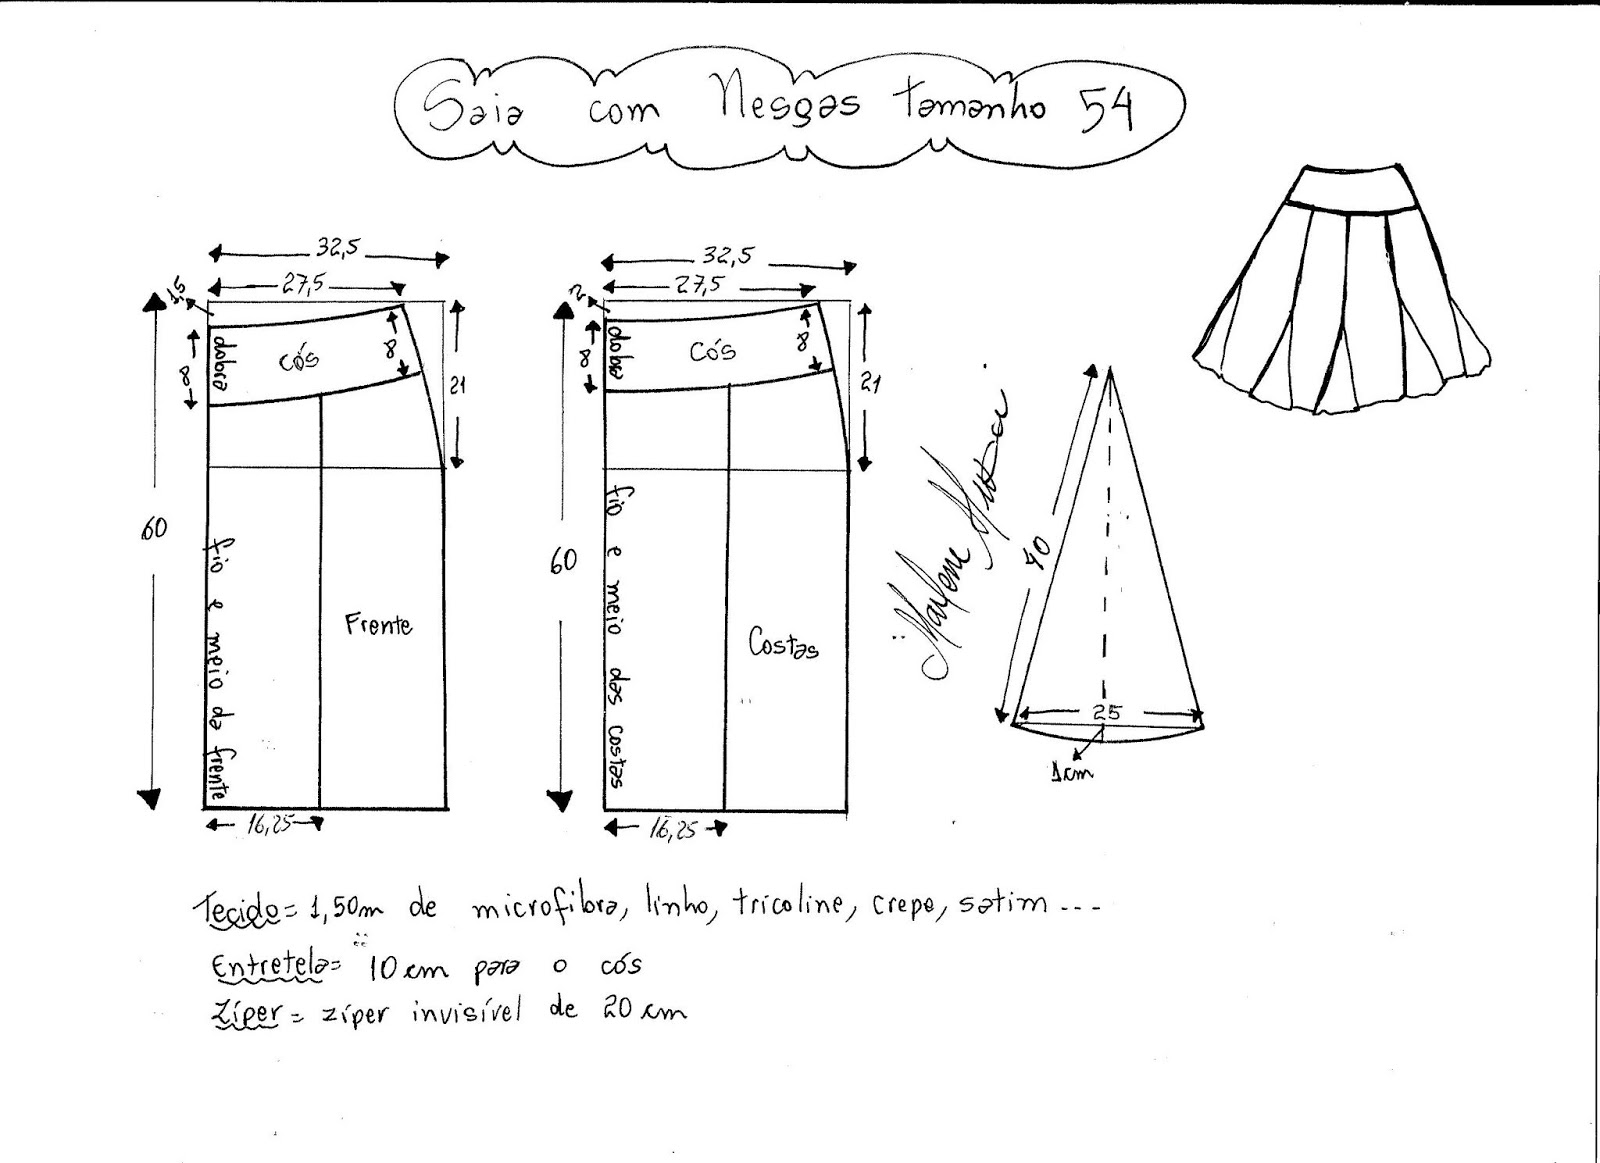 Saia com Nesgas tamanho 54
32,5
27,5
1,5
8
dobra
cós
8
21
60
fio e meio da frente
Frente
16,25
32,5
27,5
2
8
dobra
cós
8
21
60
fio e meio das costas
Costas
16,25
Marlene Mukai
40
25
1cm
Tecido= 1,50m de microfibra, linho, tricoline, crepe, satim ---
Entretela= 10 cm para o cós
Zíper= zíper invisível de 20 cm